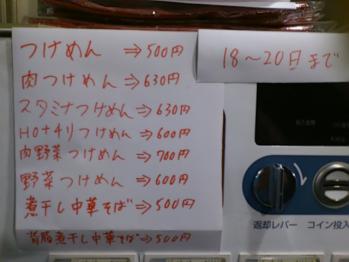 つけめん ⇒500円
肉つけめん ⇒630円
スタミナつけめん⇒630円
HOチリつけめん⇒600円
肉野菜つけめん⇒700円
野菜つけめん⇒600円
煮干し中華そば⇒500円
背脂煮干し中華そば⇒500円
18〜20日まで
返却レバー
コイン投入